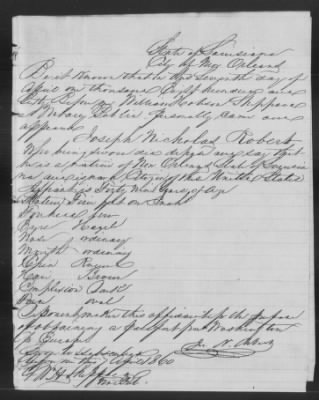 State of Louisiana
City of New Orleans
Be it Known that on this Seventh day of
April one thousand Eight hundred and
Sixty Before me William Hobson Shippard
a Notary Public personally came and
appeard
Joseph Nicholas Robert
Who being sworn did depose and say that
he is a native of New Orleans State of Louisiana
and is a Citizen of the United States
Age
Stature Five feet
Forehead
Eyes Hazel
Nose ordinary
Mouth ordinary
Chin Round
Hair Brown
Complexion Dark
Face oval
makes this affidavit for the purpose
of obtaining a passport from Washington
to Europe
Sworn to & subscribed
before me this 7 April 1860
J. N. Robert